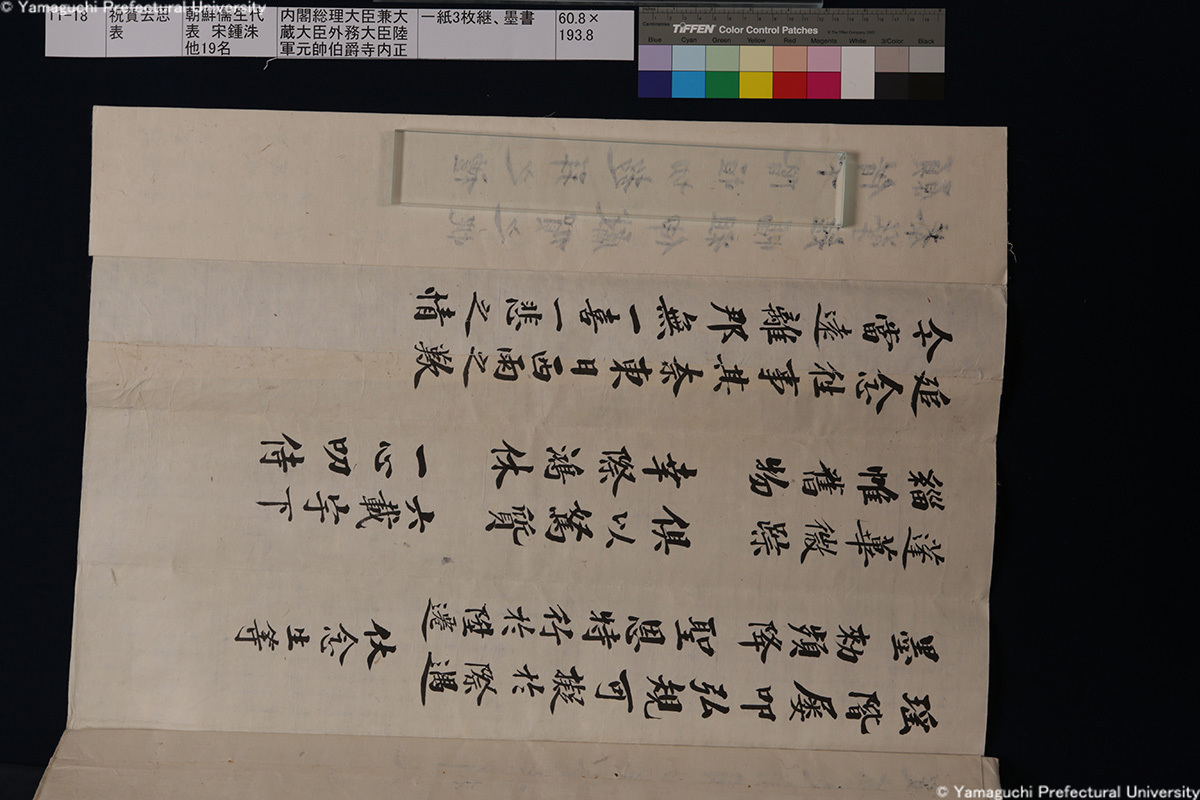 © Yamaguchi Prefectural University
11-18
祝賀去思表
朝鮮儒生代表 宋鍾洙
他19名
内閣総理大臣兼大
蔵大臣外務大臣陸
軍元帥伯爵寺内正
一紙3枚継、墨書
60.8×
193.8
TIFFEN Color Control Patches
Blue Cyan Green Yellow Red Magenta White 3/Color Black
瑤階屢叩弘規可擬於際遇
墨勅頻降聖恩特行於陞遷 伏念生等
蓬蓽微蹤 俱以駑質 六載宇下
緇帷舊物 幸際鴻休 一心叨侍
追念往事其奈東日西雨之歎
今當遠離那無一喜一悲之情
© Yamaguchi Prefectural University